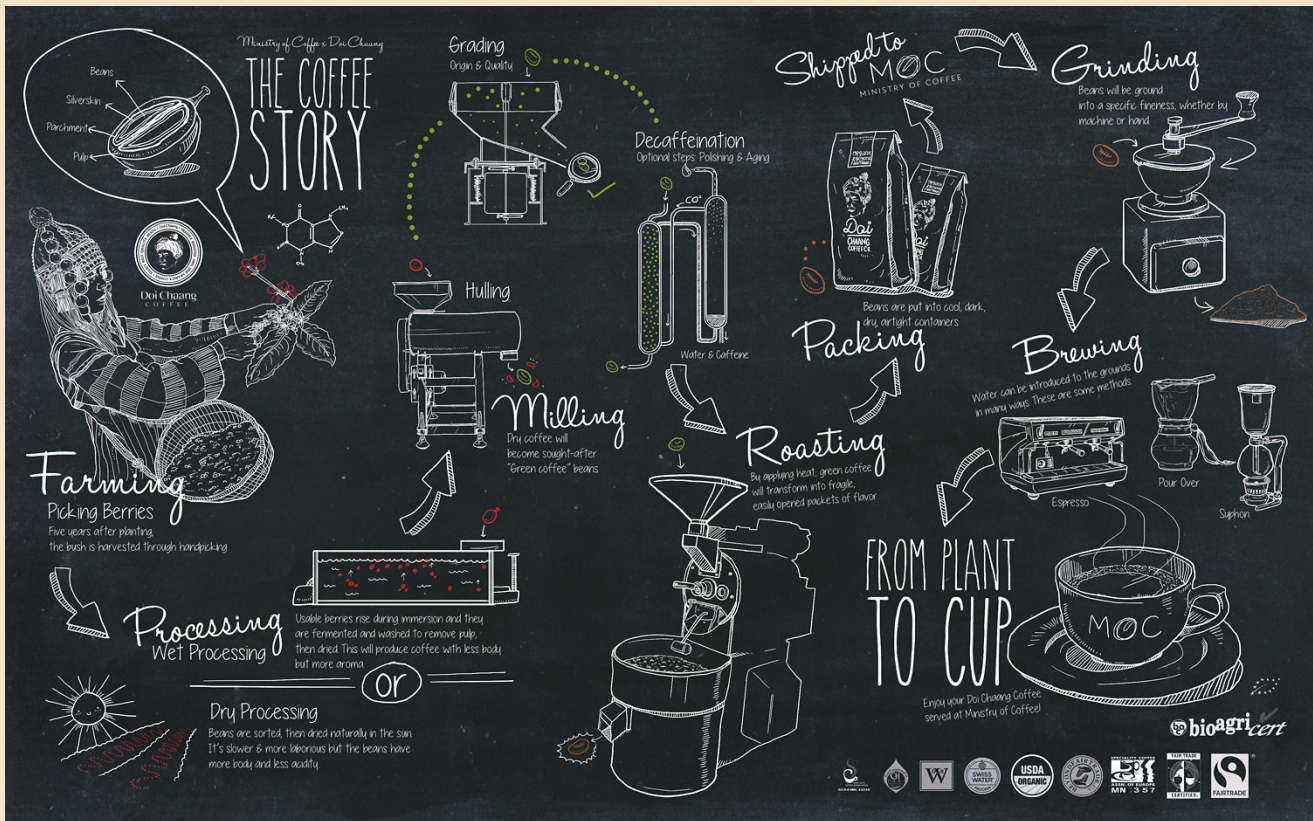 Ministry of Coffee x Doi Chaang
THE COFFEE
STORY
Beans
Silverskin
Parchment
Pulp
Doi Chaang
COFFEE
Farming
Picking Berries
Five years after planting,
the bush is harvested through handpicking
Processing
Wet Processing
Usable berries rise during immersion and they
are fermented and washed to remove pulp,
then dried. This will produce coffee with less body
but more aroma
or
Dry Processing
Beans are sorted, then dried naturally in the sun.
It's slower & more laborious but the beans have
more body and less acidity
Hulling
Milling
Dry coffee will
become sought-after
"Green coffee" beans
Grading
Origin & Quality
Decaffeination
Optional steps: Polishing & Aging
CO²
Water & Caffeine
Roasting
By applying heat, green coffee
will transform into fragile,
easily opened packets of flavor
Packing
Beans are put into cool, dark,
dry, airtight containers
Doi
CHAANG
COFFEE
Doi
Shipped to
MOC
MINISTRY OF COFFEE
Grinding
Beans will be ground
into a specific fineness, whether by
machine or hand
Brewing
Water can be introduced to the grounds
in many ways. These are some methods
Espresso
Pour Over
Syphon
FROM PLANT
TO CUP
MOC
Enjoy your Doi Chaang Coffee
served at Ministry of Coffee!
bioagricert
W
SWISS
WATER
USDA
ORGANIC
SPECIALITY COFFEE
ASSN OF EUROPE
MN :357
FAIR TRADE
CERTIFIED
FAIRTRADE